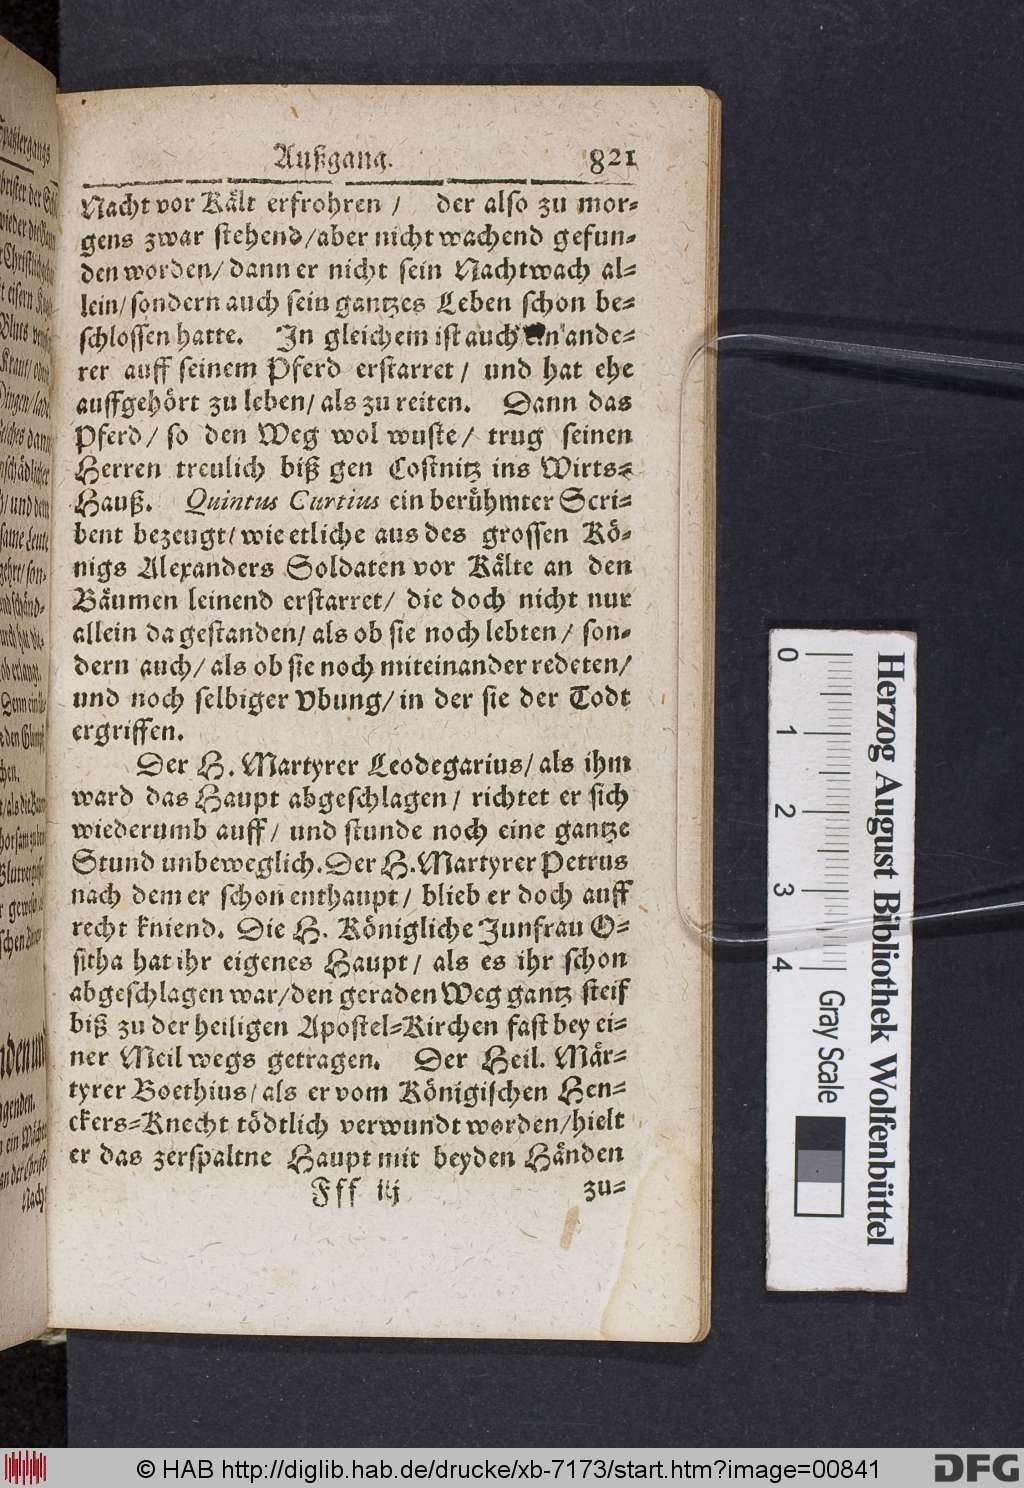 Außgang. 821
Nacht vor Kält erfrohren / der also zu mor-
gens zwar stehend/aber nicht wachend gefun-
den worden/ dann er nicht sein Nachtwach al-
lein/ sondern auch sein gantzes Leben schon be-
schlossen hatte. In gleichem ist auch ein ande-
rer auff seinem Pferd erstarret/ und hat ehe
auffgehört zu leben/ als zu reiten. Dann das
Pferd/ so den Weg wol wuste/ trug seinen
Herren treulich biß gen Costnitz ins Wirts-
Hauß. Quintus Curtius ein berühmter Scri-
bent bezeugt/ wie etliche aus des grossen Kö-
nigs Alexanders Soldaten vor Kälte an den
Bäumen leinend erstarret/ die doch nicht nur
allein da gestanden/ als ob sie noch lebten/ son-
dern auch/ als ob sie noch miteinander redeten/
und noch selbiger Vbung/ in der sie der Todt
ergriffen.
Der H. Martyrer Leodegarius/ als ihm
ward das Haupt abgeschlagen/ richtet er sich
wiederumb auff/ und stunde noch eine gantze
Stund unbeweglich. Der H. Martyrer Petrus
nach dem er schon enthaupt/ blieb er doch auff
recht kniend. Die H. Königliche Junfrau O-
sitha hat ihr eigenes Haupt/ als es ihr schon
abgeschlagen war/den geraden Weg gantz steif
biß zu der heiligen Apostel-Kirchen fast bey ei-
ner Meil wegs getragen. Der Heil. Mär-
tyrer Boethius/ als er vom Königischen Hen-
ckers-Knecht tödtlich verwundt worden/hielt
er das zerspaltne Haupt mit beyden Händen
Fff iij zu-
0 1 2 3 4
Gray Scale
Herzog August Bibliothek Wolfenbüttel
© HAB http://diglib.hab.de/drucke/xb-7173/start.htm?image=00841
DFG